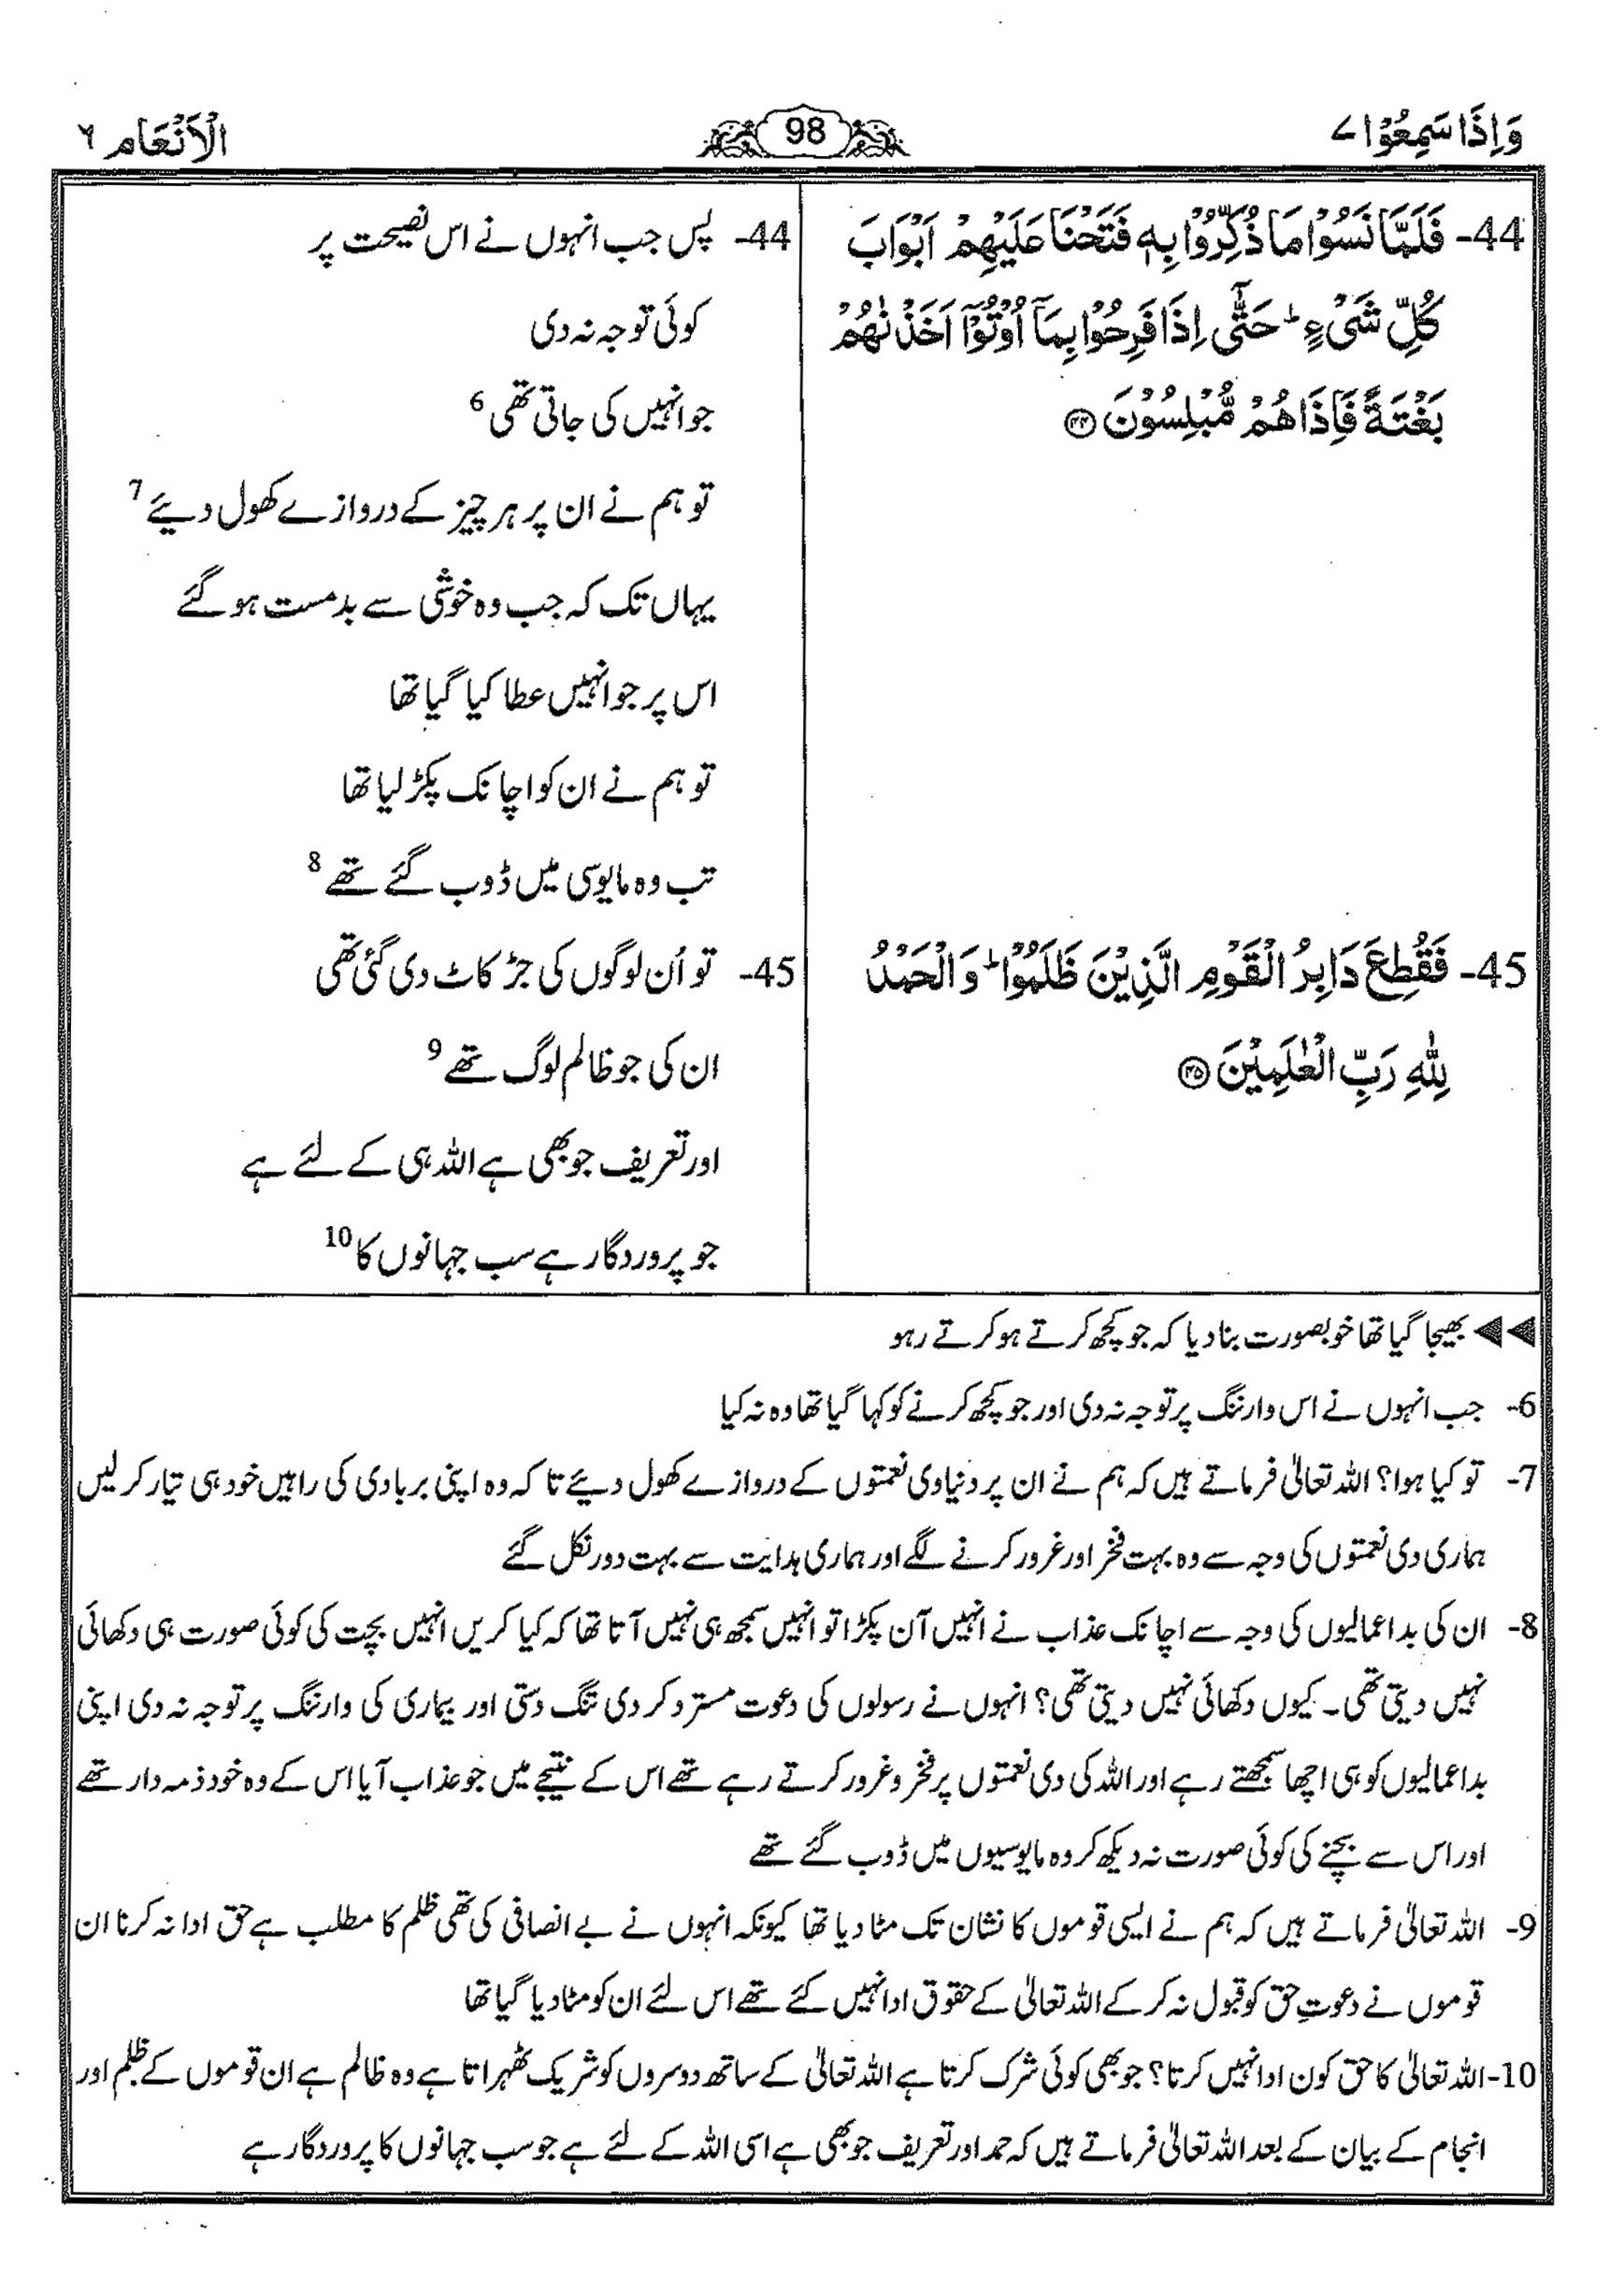 وَاِذَا سَمِعُوْا ۷
98
الْاَنْعَام ٦
44- فَلَمَّا نَسُوْا مَا ذُكِّرُوْا بِهٖ فَتَحْنَا عَلَيْهِمْ اَبْوَابَ
كُلِّ شَیْءٍ ؕ حَتّٰۤی اِذَا فَرِحُوْا بِمَاۤ اُوْتُوْۤا اَخَذْنٰهُمْ
بَغْتَةً فَاِذَا هُمْ مُّبْلِسُوْنَ ۝۴۴
45- فَقُطِعَ دَابِرُ الْقَوْمِ الَّذِيْنَ ظَلَمُوْا ؕ وَالْحَمْدُ
لِلّٰهِ رَبِّ الْعٰلَمِيْنَ ۝۴۵
44- پس جب انہوں نے اس نصیحت پر
کوئی توجہ نہ دی
جو انہیں کی جاتی تھی 6
تو ہم نے ان پر ہر چیز کے دروازے کھول دیئے 7
یہاں تک کہ جب وہ خوشی سے بدمست ہو گئے
اس پر جو انہیں عطا کیا گیا تھا
تو ہم نے ان کو اچانک پکڑ لیا تھا
تب وہ مایوسی میں ڈوب گئے تھے 8
45- تو اُن لوگوں کی جڑ کاٹ دی گئی تھی
ان کی جو ظالم لوگ تھے 9
اور تعریف جو بھی ہے اللہ ہی کے لئے ہے
جو پروردگار ہے سب جہانوں کا 10
◀◀ بھیجا گیا تھا خوبصورت بنا دیا کہ جو کچھ کرتے ہو کرتے رہو
6- جب انہوں نے اس وارننگ پر توجہ نہ دی اور جو کچھ کرنے کو کہا گیا تھا وہ نہ کیا
7- تو کیا ہوا؟ اللہ تعالیٰ فرماتے ہیں کہ ہم نے ان پر دنیاوی نعمتوں کے دروازے کھول دیئے تا کہ وہ اپنی بربادی کی راہیں خود ہی تیار کر لیں
ہماری دی نعمتوں کی وجہ سے وہ بہت فخر اور غرور کرنے لگے اور ہماری ہدایت سے بہت دور نکل گئے
8- ان کی بداعمالیوں کی وجہ سے اچانک عذاب نے انہیں آن پکڑا تو انہیں سمجھ ہی نہیں آتا تھا کہ کیا کریں انہیں بچت کی کوئی صورت ہی دکھائی
نہیں دیتی تھی۔ کیوں دکھائی نہیں دیتی تھی؟ انہوں نے رسولوں کی دعوت مسترد کر دی تنگ دستی اور بیماری کی وارننگ پر توجہ نہ دی اپنی
بداعمالیوں کو ہی اچھا سمجھتے رہے اور اللہ کی دی نعمتوں پر فخر و غرور کرتے رہے تھے اس کے نتیجے میں جو عذاب آیا اس کے وہ خود ذمہ دار تھے
اور اس سے بچنے کی کوئی صورت نہ دیکھ کر وہ مایوسیوں میں ڈوب گئے تھے
9- اللہ تعالیٰ فرماتے ہیں کہ ہم نے ایسی قوموں کا نشان تک مٹا دیا تھا کیونکہ انہوں نے بے انصافی کی تھی ظلم کا مطلب ہے حق ادا نہ کرنا ان
قوموں نے دعوتِ حق کو قبول نہ کر کے اللہ تعالیٰ کے حقوق ادا نہیں کئے تھے اس لئے ان کو مٹا دیا گیا تھا
10- اللہ تعالیٰ کا حق کون ادا نہیں کرتا؟ جو بھی کوئی شرک کرتا ہے اللہ تعالیٰ کے ساتھ دوسروں کو شریک ٹھہراتا ہے وہ ظالم ہے ان قوموں کے ظلم اور
انجام کے بیان کے بعد اللہ تعالیٰ فرماتے ہیں کہ حمد اور تعریف جو بھی ہے اسی اللہ کے لئے ہے جو سب جہانوں کا پروردگار ہے